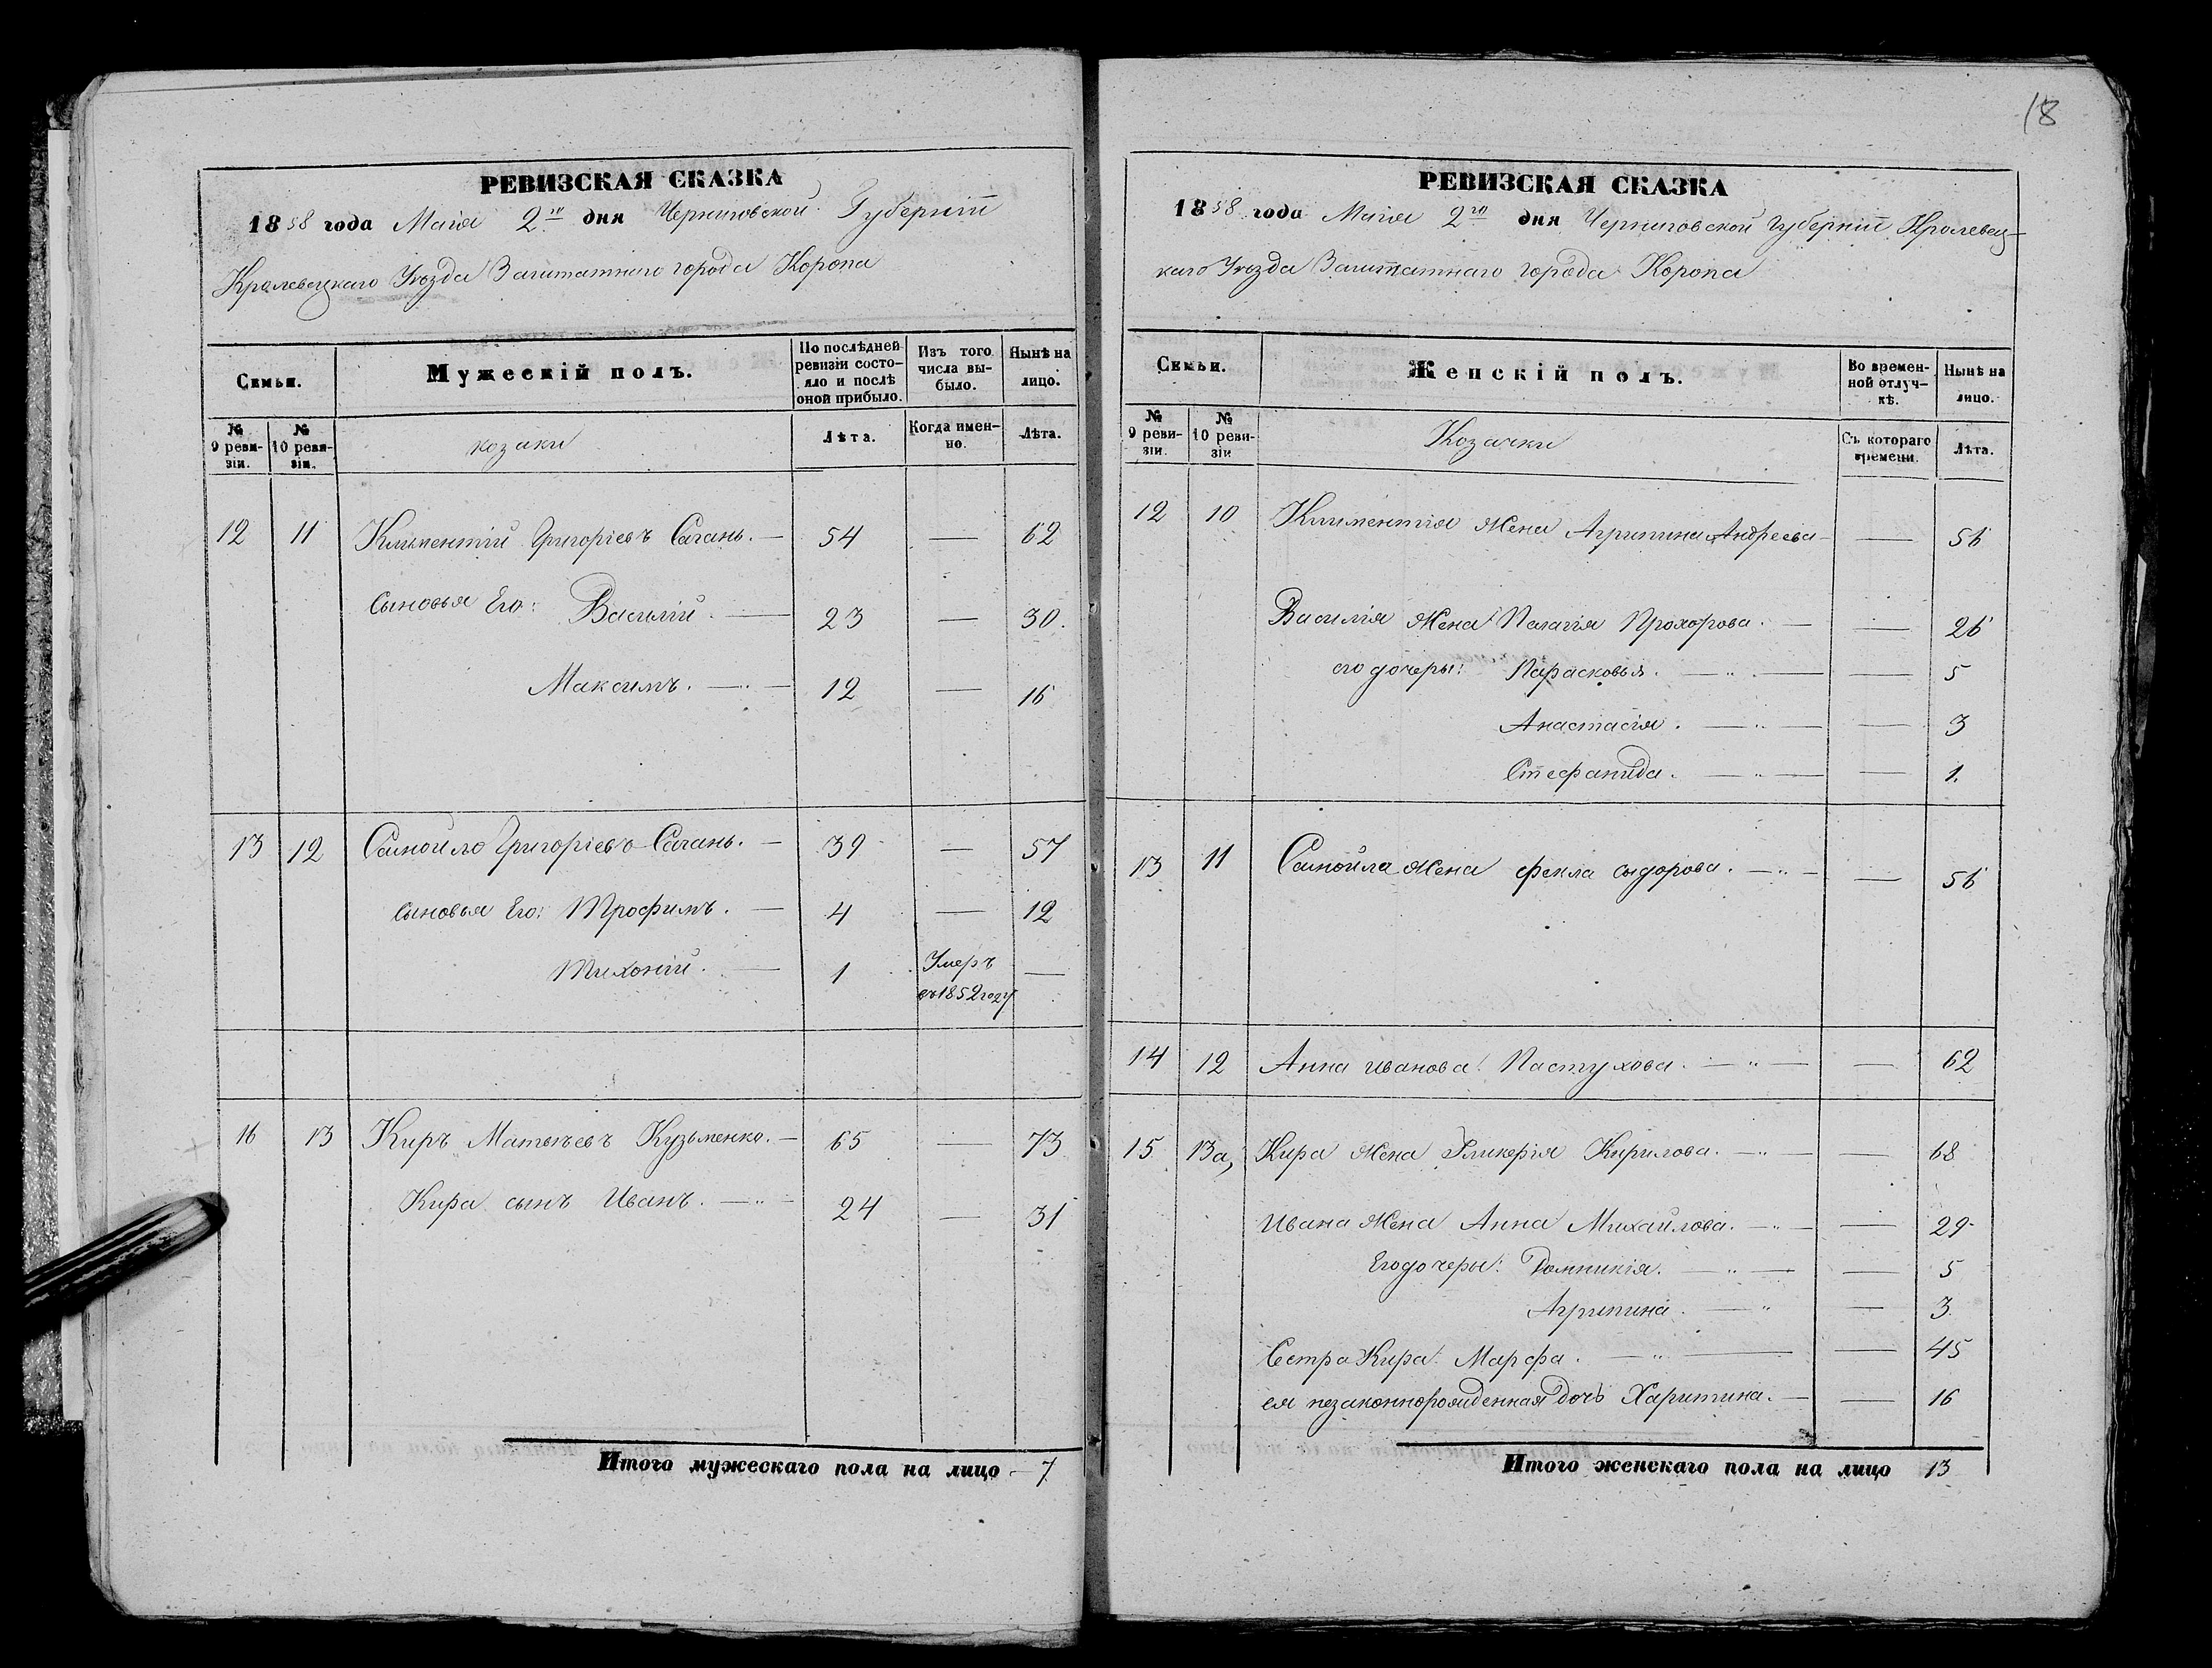 РЕВИЗСКАЯ СКАЗКА
1858 года Маія 2го дня Черниговской Губерніи
Кролевецкаго Уѣзда Заштатнаго города Коропа
Семьи.
Мужескій полъ.
По послѣдней ревизіи состо-
яло и послѣ
оной прибыло.
Изъ того
числа вы-
было.
Нынѣ на
лицо.
№
9 реви-
зіи.
№
10 реви-
зіи.
козаки
Лѣта.
Когда имен-
но.
Лѣта.
12 11 Климентій Григоріевъ Сагань. — 54 — 62
Сыновья Его: Василій. — 23 — 30.
Максимъ. — 12 — 16
13 12 Самойло Григоріевъ Сагань. — 39 — 57
Сыновья Его: Трофимъ. — 4 — 12
Тихоній. — 1 Умеръ —
въ 1852 году
16 13 Киръ Матвѣевъ Кузьменко. — 65 — 73
Кира сынъ Иванъ. — 24 — 31
Итого мужескаго пола на лицо — 7
18
РЕВИЗСКАЯ СКАЗКА
1858 года Маія 2го дня Черниговской Губерніи Кролевец-
каго Уѣзда Заштатнаго города Коропа
Семьи.
Женскій полъ.
Во времен-
ной отлуч-
кѣ.
Нынѣ на
лицо.
№
9 реви-
зіи.
№
10 реви-
зіи
Козачки
Съ котораго
времени.
Лѣта.
12 10 Климентія Жена Агрипина Андреева — — 56
Василія Жена Палагія Прохорова. — — 26
его дочеры: Парасковья. — — 5
Анастасія. — — 3
Стефанида. — — 1.
13 11 Самойла Жена Фекла Сыдорова. — — 56
14 12 Анна Иванова Пастухова. — — 62
15 13а, Кира Жена Гликерія Кирилова. — — 68
Ивана Жена Анна Михайлова. — — 29
Его дочеры: Домникія. — — 5
Агрипина. — — 3.
Сестра Кира Марфа. — — 45
ея незаконнорожденная Дочь Харитина. — — 16
Итого женскаго пола на лицо 13